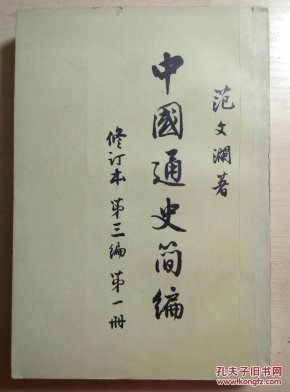 范文瀾著
中國通史简編
修订本 第三编 第一册
孔夫子旧书网